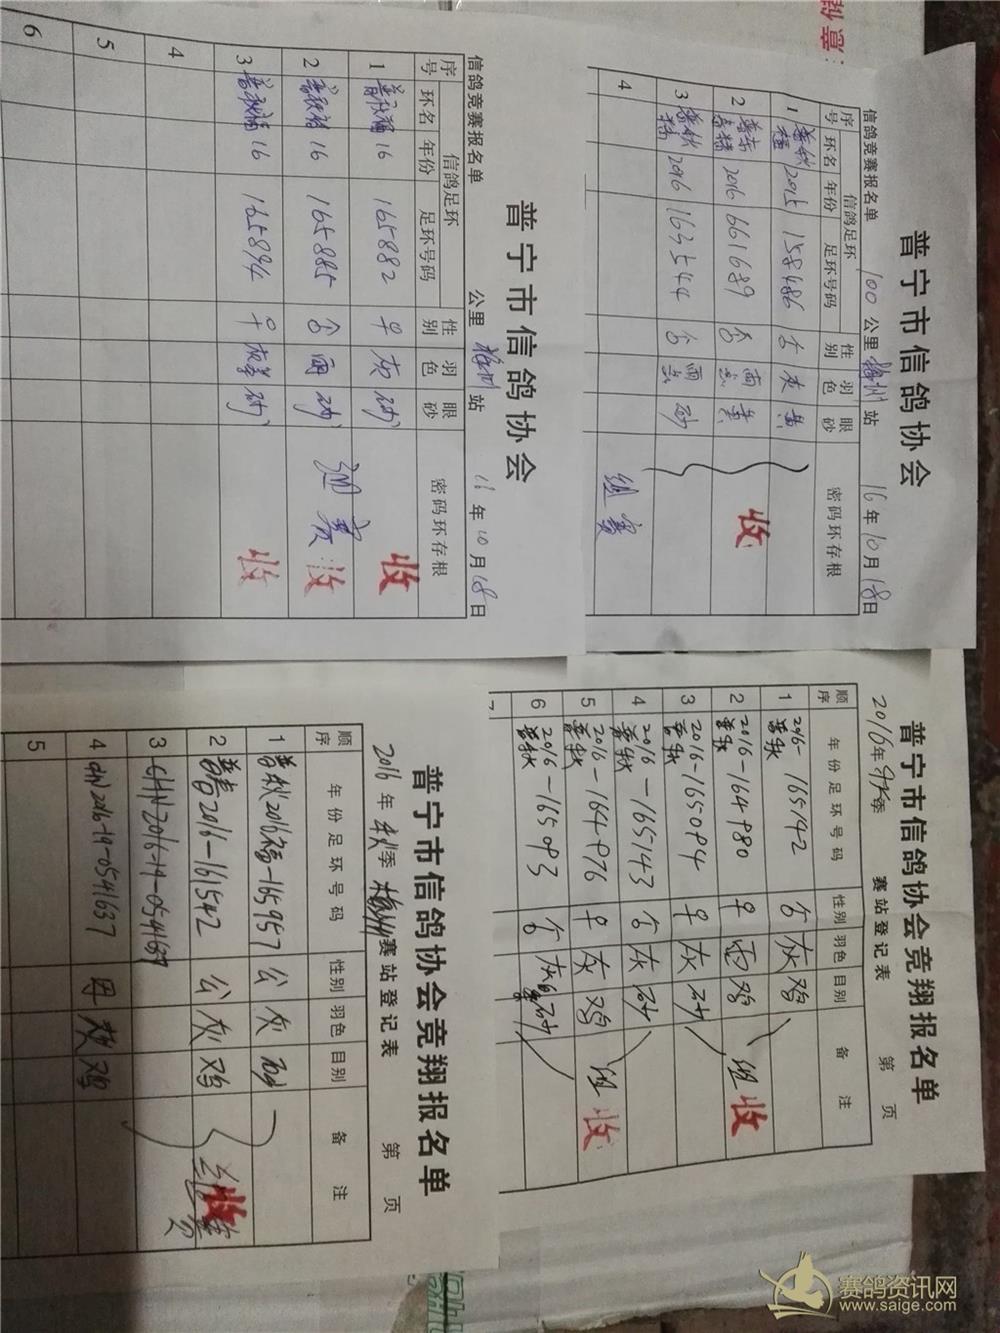 普宁市信鸽协会
信鸽竞赛报名单 100 公里 梅州 站 16 年 10 月 18 日
序号 信鸽足环 性别 羽色 眼砂 密码环存根
环名 年份 足环号码
1 2015 158486 灰 黄
2 2016 661689 雨点 黄
收
3 2016 163544 雨点 砂
4
组赛
普宁市信鸽协会
信鸽竞赛报名单 公里 梅州 站 年 10 月 18 日
序号 信鸽足环 性别 羽色 眼砂 密码环存根
环名 年份 足环号码
1 普秋福 16 165882 灰 砂 收
2 普秋福 16 165885 雨 砂 收
3 普秋福 16 165894 砂 收
4
5
6
普宁市信鸽协会竞翔报名单
2016年 季 赛站登记表 第 页
顺序 年份足环号码 性别 羽色 目别 备注
1 普秋 2016-165142 灰 鸡
2 普秋 2016-164980 雨 鸡 组 收
3 普秋 2016-165094 灰 砂
4 普秋 2016-165143 灰 砂
5 普秋 2016-164976 灰 鸡 组 收
6 普秋 2016-165093 砂
7
普宁市信鸽协会竞翔报名单
2016 年 秋 季 梅州 赛站登记表 第 页
顺序 年份足环号码 性别 羽色 目别 备注
1 普秋2016福-165957 公 灰 砂
2 普春2016-161542 公 灰 鸡 收
3 CHN2016-19-0541639
4 CHN2016-19-0541637 母 鸡
5
赛鸽资讯网
www.saige.com